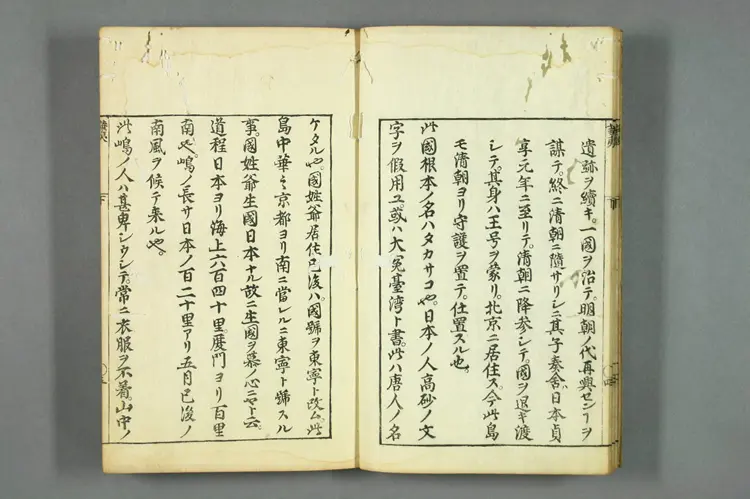 遺跡ヲ續キ。一國ヲ治テ。明朝ノ代再興センヿヲ
謀テ。終ニ清朝ニ隨サリシニ其子奏舎。日本貞
享元年ニ至リテ。清朝ニ降参シテ。國ヲ退キ渡
シテ。其身ハ王号ヲ蒙リ。北京ニ居住ス。今此島
モ清朝ヨリ守護ヲ置テ。仕置スル也。
此國根本ノ名ハタカサコ也。日本ノ人高砂ノ文
字ヲ假用ユ。或ハ大冤臺湾ト書。此ハ唐人ノ名
ケタル也。國姓爺居住已後ハ。國號ヲ東寧ト改ム。此
島中華ミ京都ヨリ南ニ當レルニ東寧ト號スル
事。國姓爺生國日本ナル故ニ生國ヲ慕ノ心ニヤト云
道程日本ヨリ海上六百四十里。厦門ヨリ百里
南也。嶋ノ長サ日本ノ百二十里アリ五月已後ノ
南風ヲ候テ来ル也。
此嶋ノ人ハ甚卑シウシテ。常ニ衣服ヲ不着。山中ノ